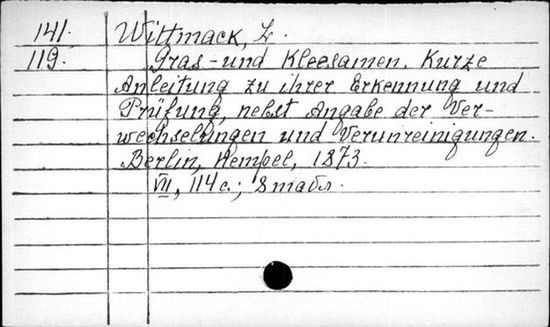 141.
119.
Wittmack, L.
Gras- und Kleesamen. Kurze
Anleitung zu ihrer Erkennung und
Prüfung, nebst Angabe der Ver-
wechselungen und Verunreinigungen.
Berlin, Hempel, 1873.
VII, 114 с.; 8 табл.